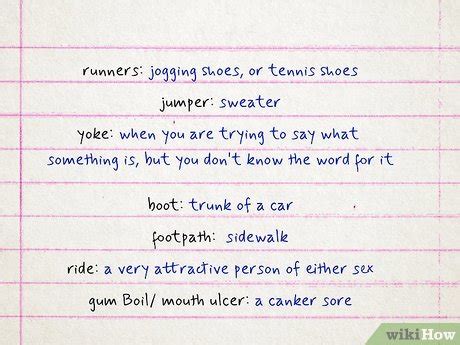 runners: jogging shoes, or tennis shoes
jumper: sweater
yoke: when you are trying to say what
something is, but you don't know the word for it
boot: trunk of a car
footpath: sidewalk
ride: a very attractive person of either sex
gum Boil/ mouth ulcer: a canker sore
wikiHow